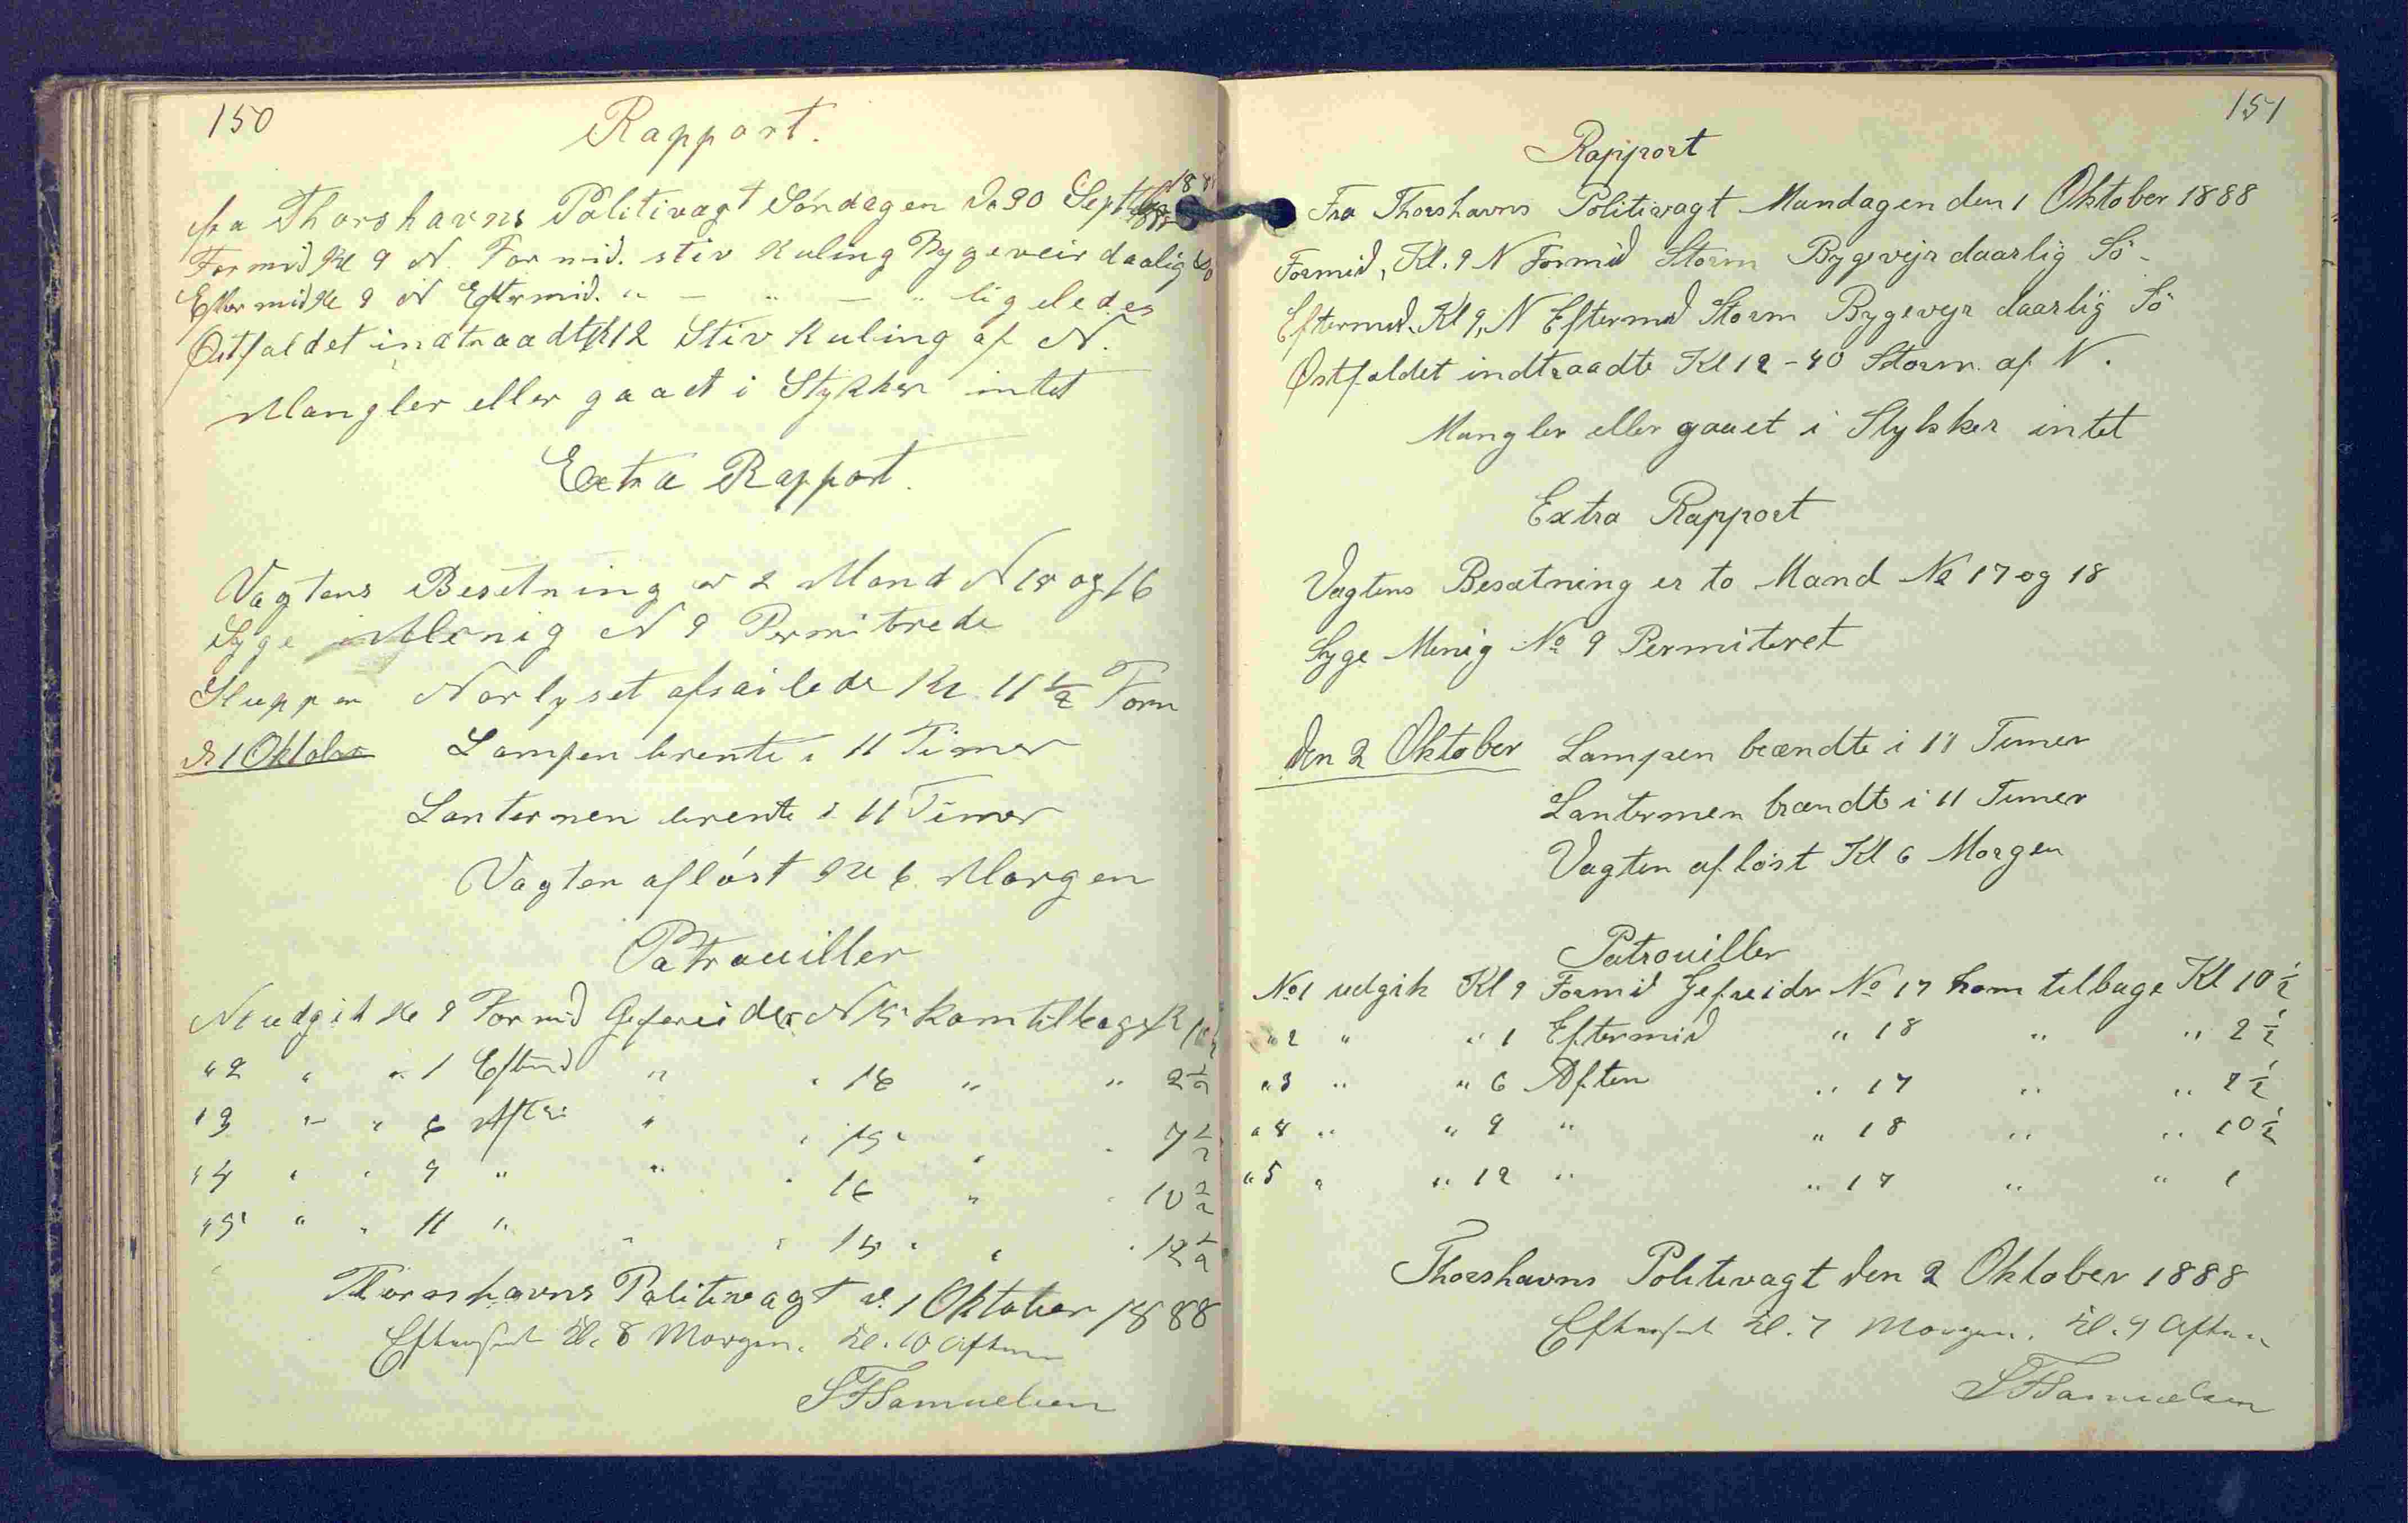 150
Rapport.
fra Thorshavns Politivagt Søndagen d. 30 Septbr 1888
Formid Kl 9 N. Formid. stiv Kuling Bygeveir daalig Sø
Eftermid Kl 9 N Eftermid. " — " — " ligeledes
Østfaldet indtraadte Kl 12 Stiv Kuling af N.
Mangler eller gaaet i Stykker intet
Extra Rapport.
Vagtens Besetning er 2 Mand N 15 og 16
Syge Menig N 9 Permiterede
Sluppen Norlyset afsailede Kl. 11 1/2 Form
d. 1 Oktober Lampen brente i 11 Timer
Lanternen brente i 11 Timer
Vagten afløst Kl 6 Morgen
Patrouiller
N 1 udgik Kl 9 Formid Gefreider N 15 kom tilbage Kl 10 1/2
" 2 " " 1 Eftmid " " 16 " " 2 1/2
" 3 " " 6 Aften " " 15 " " 7 1/2
" 4 " " 9 " " " 16 " " 10 1/2
" 5 " " 11 " " " 15 " " 12 1/2
Thorshavns Politivagt d. 1 Oktober 1888
Efterseet Kl. 8 Morgen. Kl. 10 Aften
SFSamuelsen
151
Rapport
Fra Thorshavns Politivagt Mandagen den 1 Oktober 1888
Formid, Kl. 9 N Formid Storm Bygevejr daarlig Sö -
Eftermid. Kl 9, N Eftermid Storm Bygevejr daarlig Sö
Østfaldet indtraadte Kl 12-40 Storm af N.
Mangler eller gaaet i Stykker intet
Extra Rapport
Vagtens Besætning er to Mand No 17 og 18
Syge Menig No 9 Permiteret
Den 2 Oktober Lampen brændte i 11 Timer
Lanternen brændte i 11 Timer
Vagten afløst Kl 6 Morgen
Patrouiller
No 1 udgik Kl 9 Formid Gefreidr No 17 kom tilbage Kl 10 1/2
" 2 " " 1 Eftermid " 18 " " 2 1/2
" 3 " " 6 Aften " 17 " " 7 1/2
" 4 " " 9 " " 18 " " 10 1/2
" 5 " " 12 " " 17 " " 1
Thorshavns Politivagt den 2 Oktober 1888
Efterseet Kl. 7 Morgen. Kl. 9 Aften
SFSamuelsen